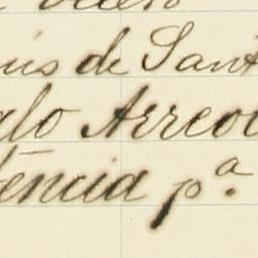 nis de Sant
alo Arreol
tência pª.